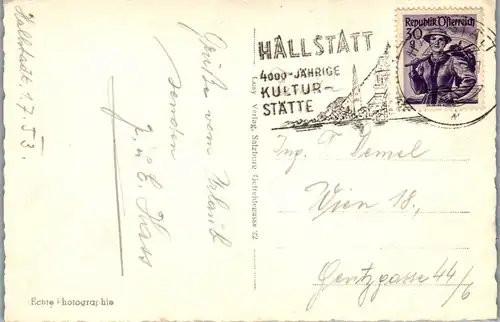 Hallstatt, 17.53.
Grüße vom Urlaub
senden
HALLSTATT
4000-JÄHRIGE
KULTUR-
STÄTTE
REPUBLIK ÖSTERREICH
30
g
Ing. T. Demel
Wien 18,
Gentzgasse 44/6
Cosy Verlag, Salzburg Getreidegasse 22
Echte Photographie